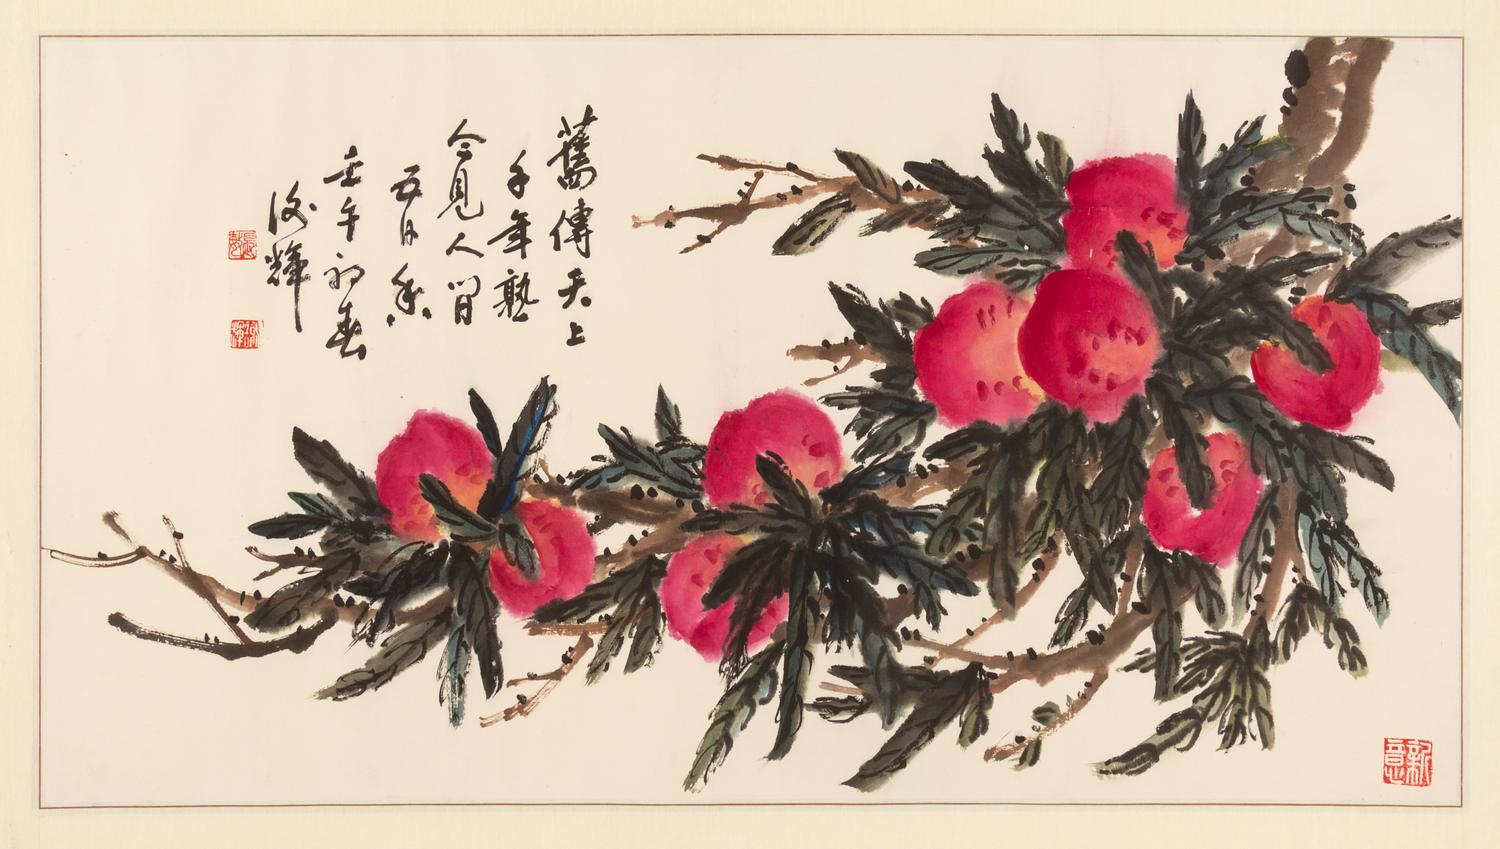 舊傳天上
千年熟
今見人間
五月香
壬午初春
輝
新意